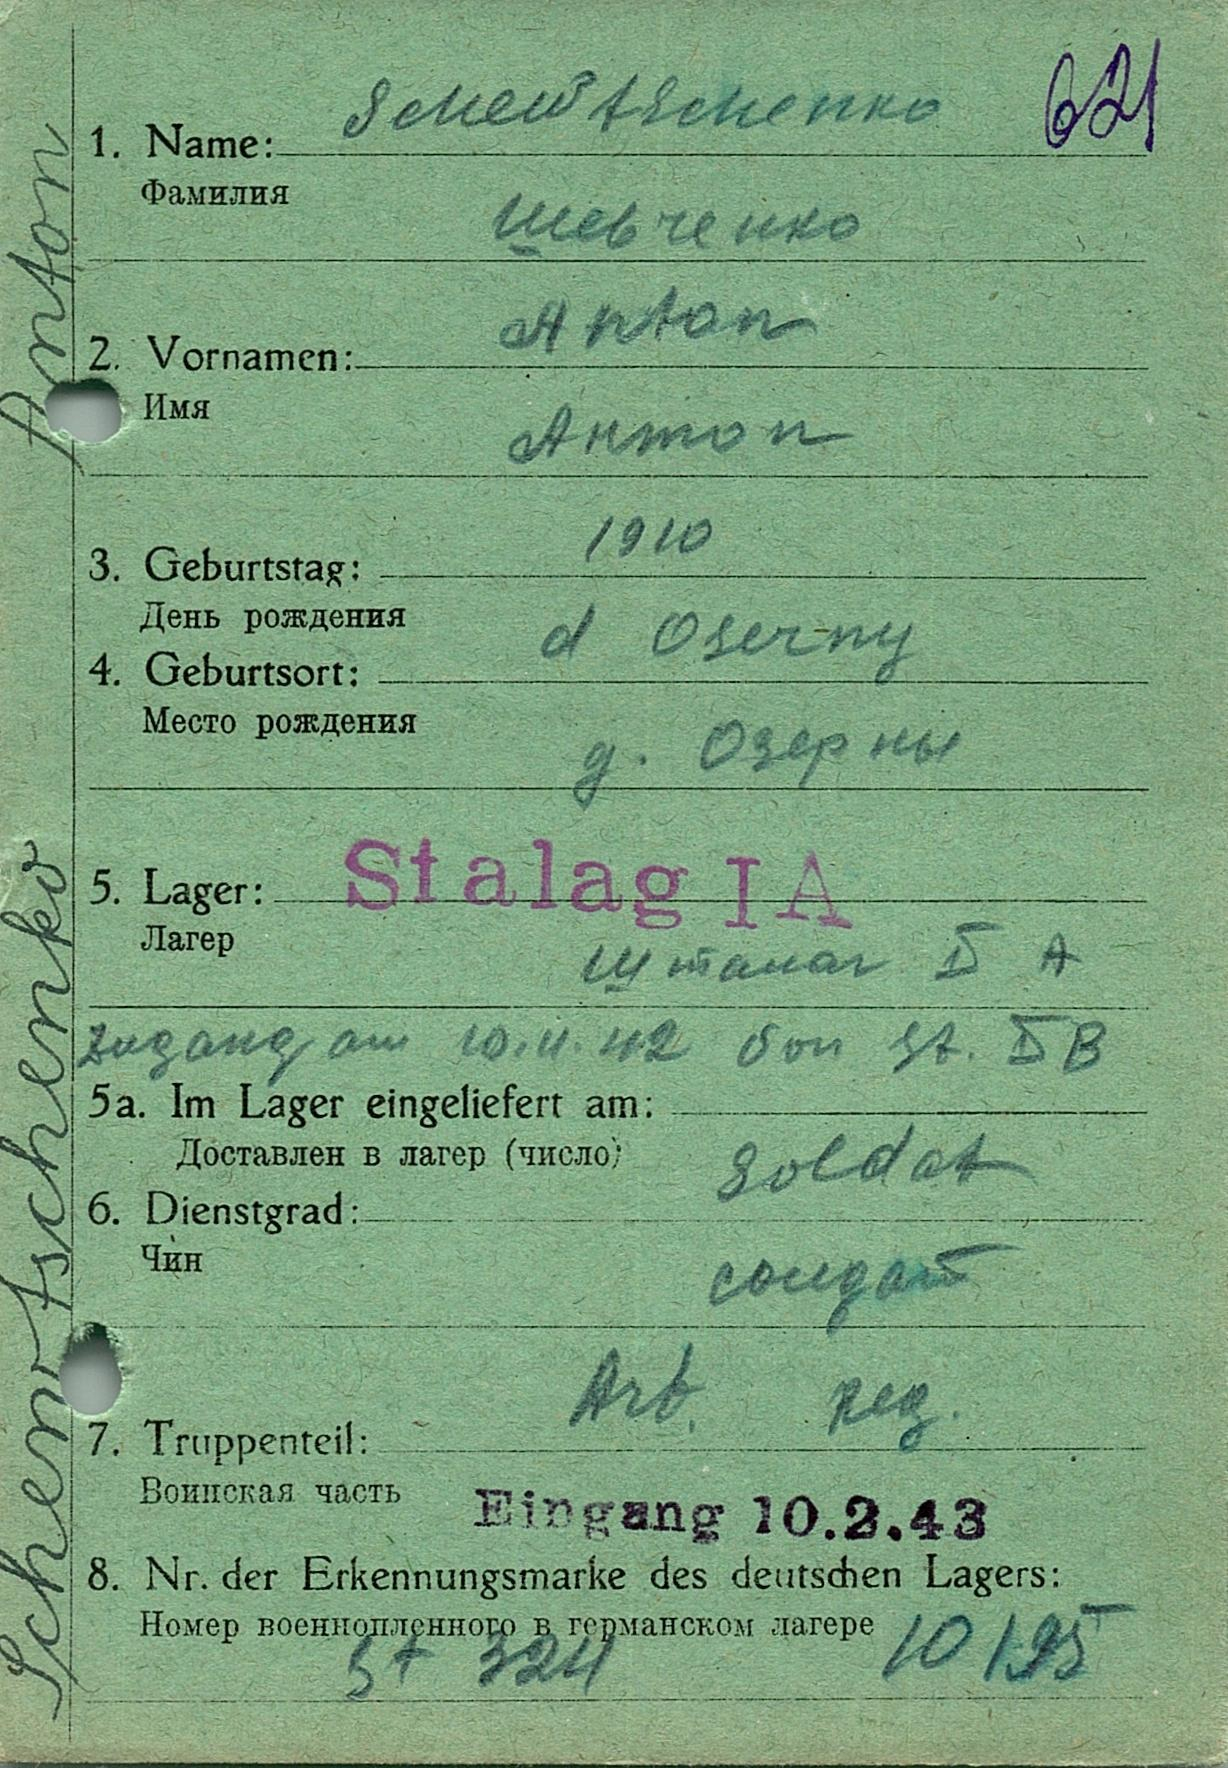 621
Schewtschenko
1. Name:
Фамилия
Шевченко
Anton
2. Vornamen:
Имя
Антон
1910
3. Geburtstag:
День рождения
d Oserny
4. Geburtsort:
Место рождения
д. Озерны
5. Lager: Stalag IA
Лагер
Шталаг I A
Zugang am 10.11.42 von St. I B
5a. Im Lager eingeliefert am:
Доставлен в лагер (число)
Soldat
6. Dienstgrad:
Чин
солдат
Art. Reg.
7. Truppenteil:
Воинская часть
Eingang 10.2.43
8. Nr. der Erkennungsmarke des deutschen Lagers:
Номер военнопленного в германском лагере
St 324 10195
Schewtschenko Anton